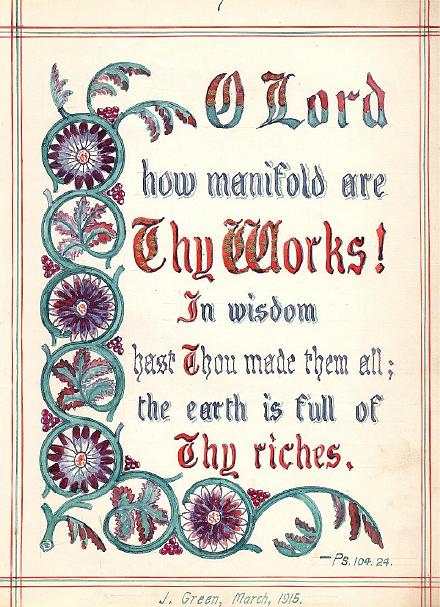 O Lord
how manifold are
Thy Works!
In wisdom
hast Thou made them all;
the earth is full of
Thy riches.
—Ps. 104. 24.
J. Green, March, 1915.